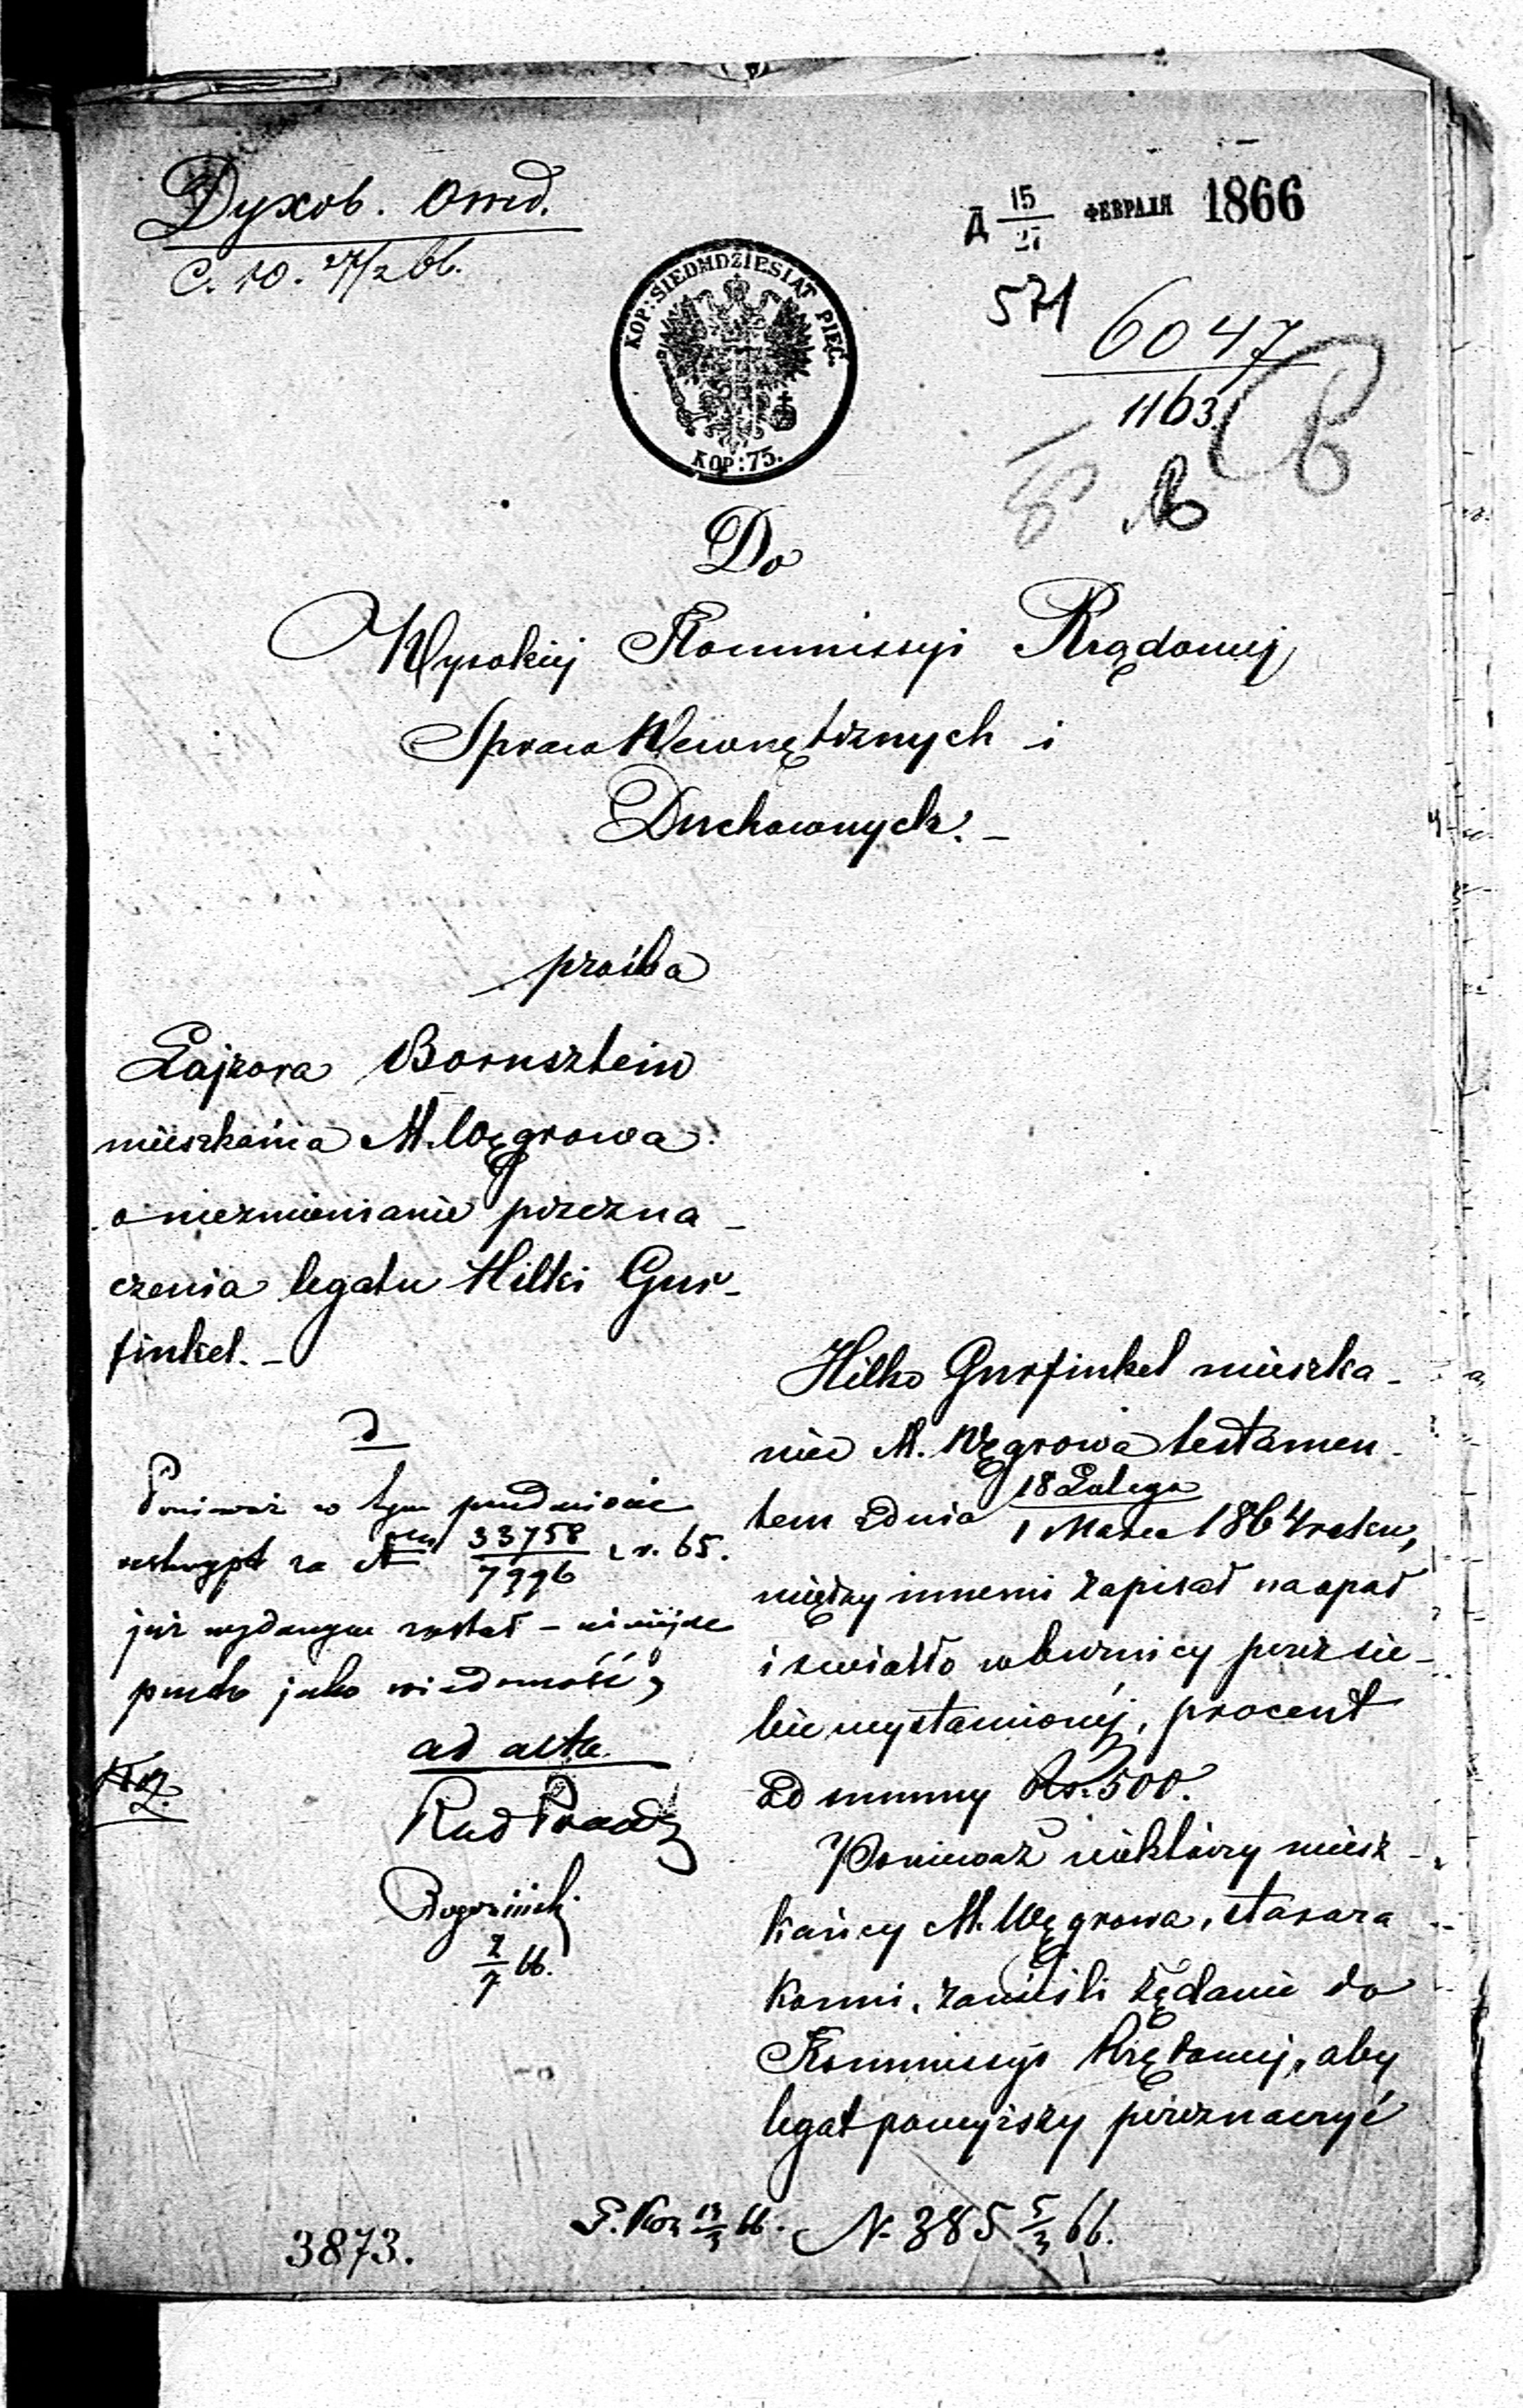 Духов. Отд.
С. 10. 27/2 66.
Д 15/27 ФЕВРАЛЯ 1866
571
6047
1163.
KOP: SIEDMDZIESIAT PIĘĆ.
KOP: 75.
Do
Wysokiéj Kommissyi Rządowéj
Spraw Wewnętrznych i
Duchownych. –
prośba
Lajzora Bornsztein
mieszkańca M. Węgrowa
o niezmienianie przezna_
czenia legatu Hilki Gur_
finkel. _
Ponieważ w tym przedmiocie
reskrypt za N 33758/7996 z r. 65.
już wydanym został – niniejsze
jako wiadomość,
ad acta
2/7 66.
Hilko Gurfinkel mieszka_
niec M. Węgrowa testamen_
tem zdnia 18 Lutego/1 Marca 1864 roku,
między innemi zapisał na opał
i swiatło w bużnicy przez sie_
bie wystawionéj, procent
od summy Rs. 500.
Ponieważ niektórzy miesz_
kańcy M. Węgrowa, stozara
konni, zanieśli żądanie do
Kommissyi Rządowéj, aby
legat powyższy przeznaczyć
3873.
13/3 66. N. 385 5/3 66.